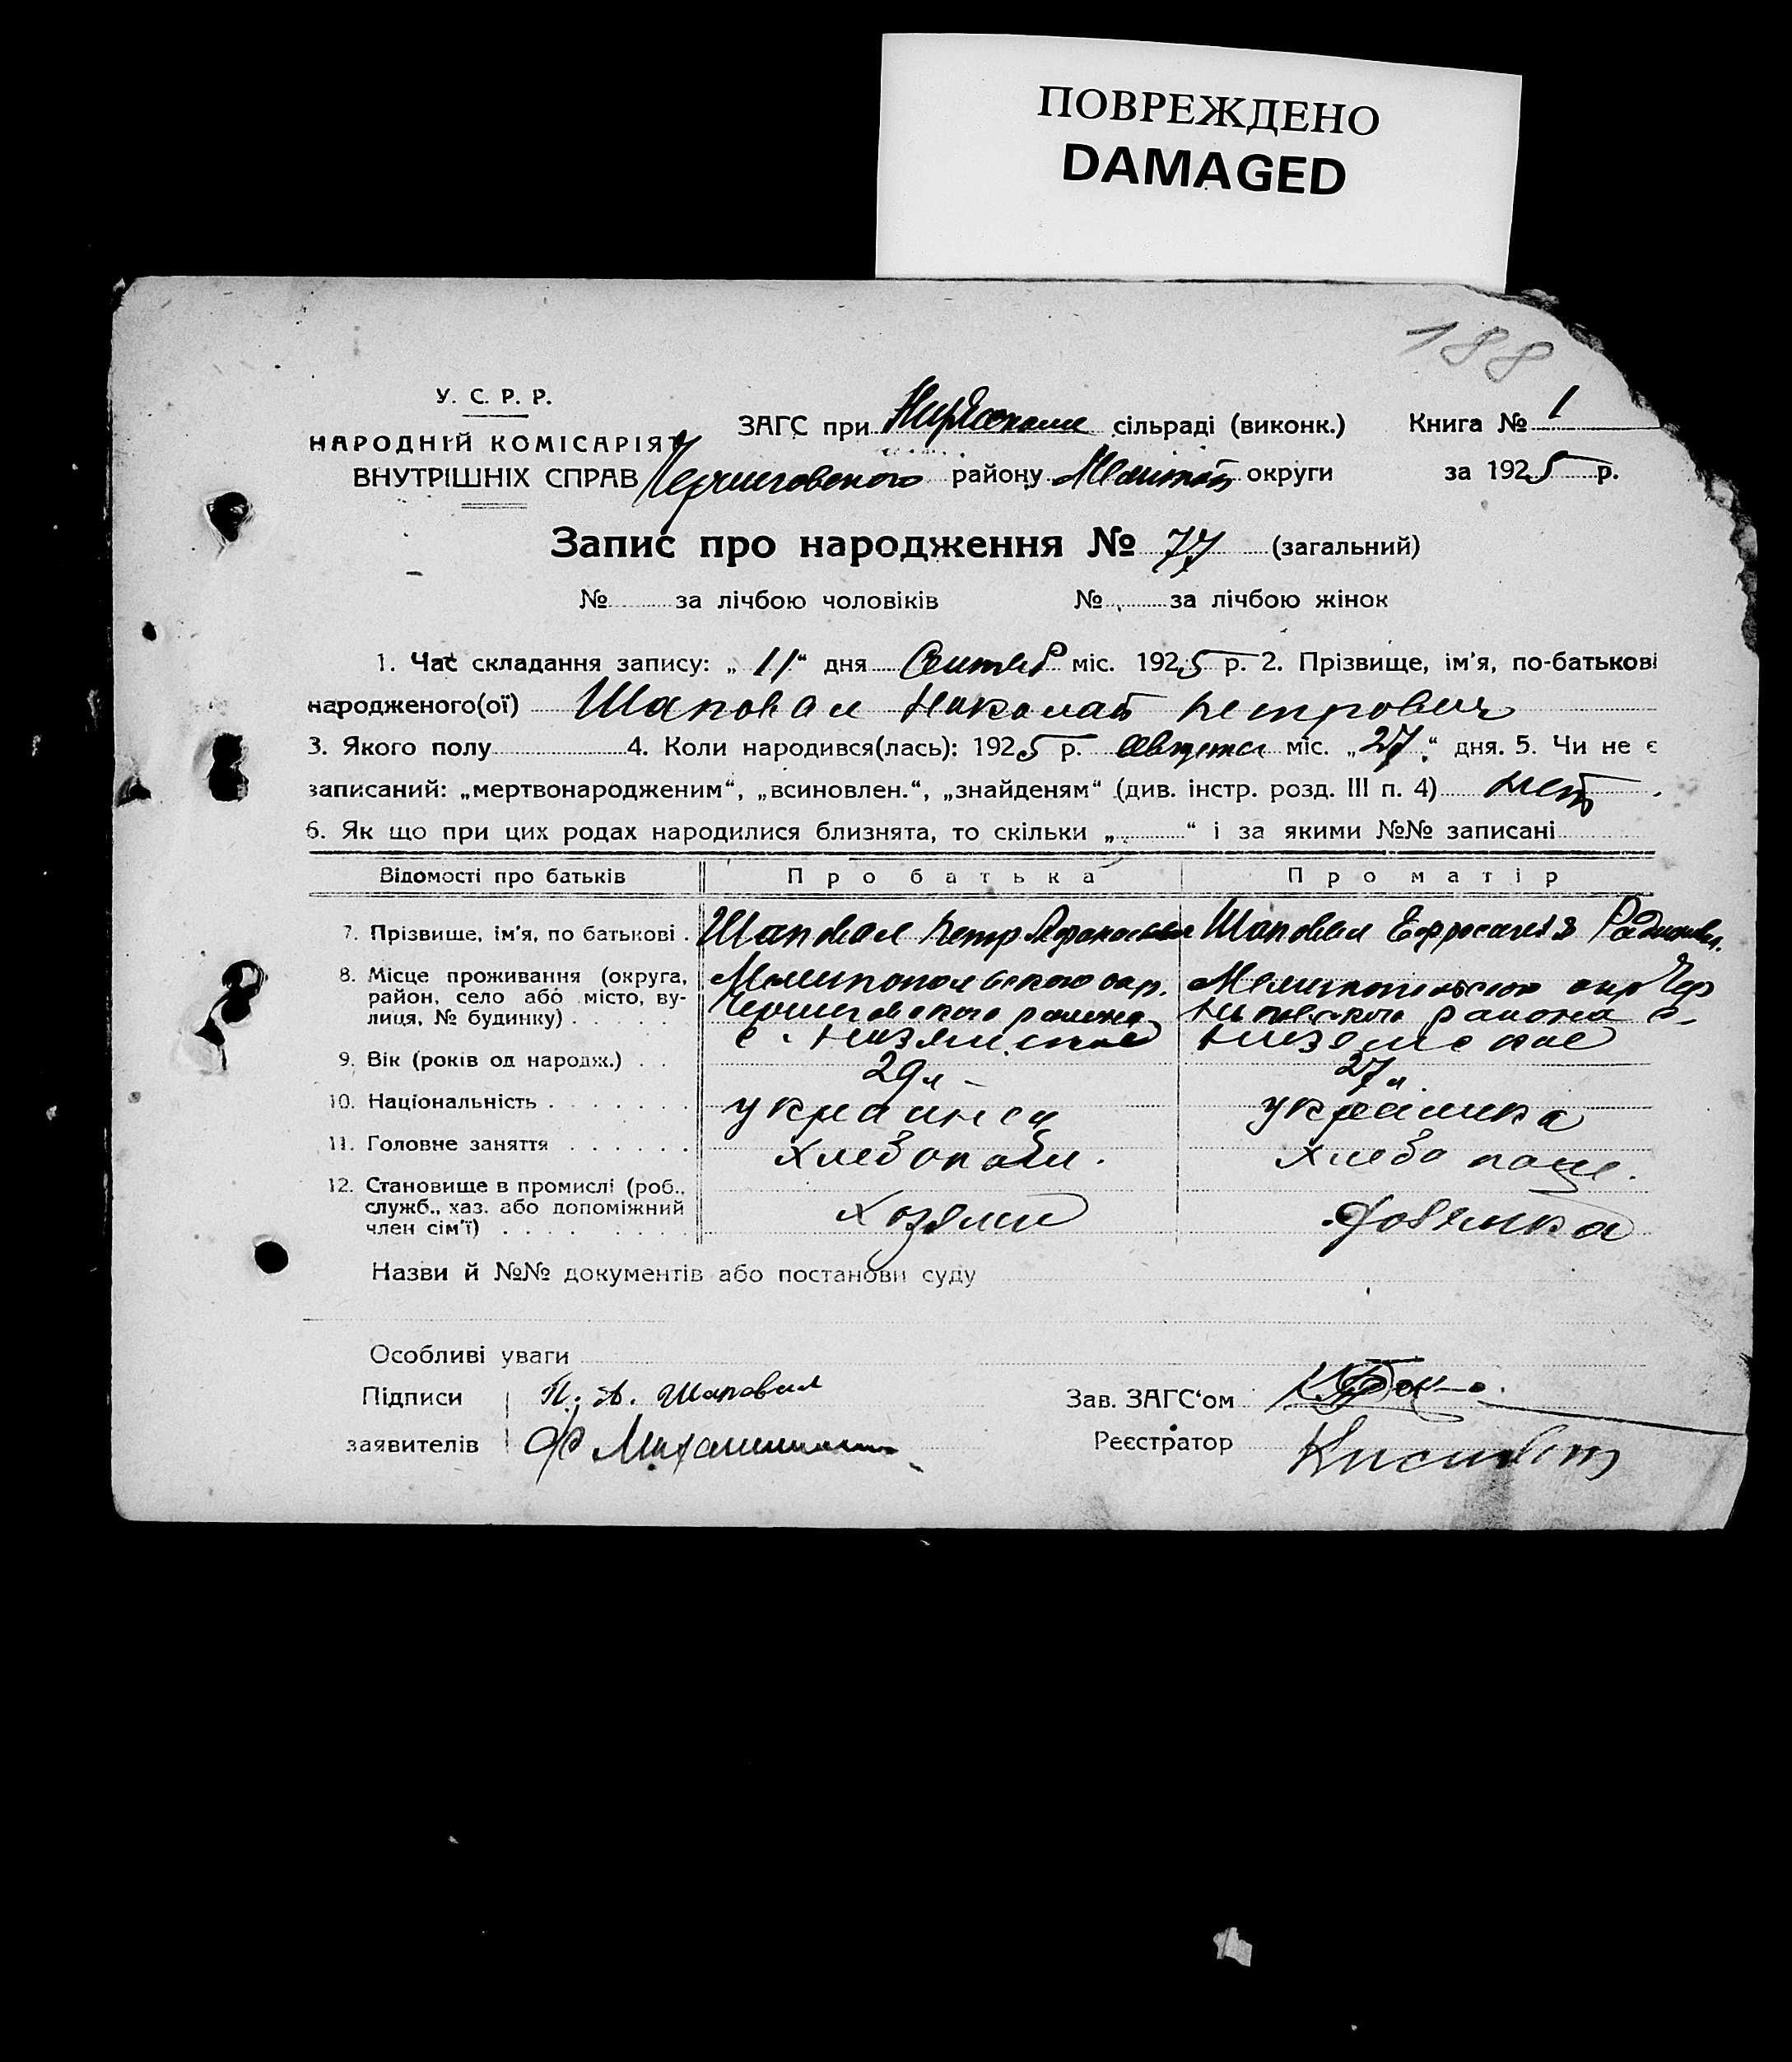 ПОВРЕЖДЕНО
DAMAGED
188
У. С. Р. Р.
НАРОДНІЙ КОМІСАРІЯТ
ВНУТРІШНІХ СПРАВ
ЗАГС при сільраді (виконк.) Книга № 1
Черниговского району Мелитоп округи за 1925 р.
Запис про народження № 77 (загальний)
№ за лічбою чоловіків № за лічбою жінок
1. Час складання запису: „11“ дня Сентяб міс. 1925 р. 2. Прізвище, ім'я, по-батькові
народженого(ої) Шаповал Николай Петрович
3. Якого полу 4. Коли народився(лась): 1925 р. Августа міс. „27“ дня. 5. Чи не є
записаний: „мертвонародженим“, „всиновлен.“, „знайденям“ (див. інстр. розд. III п. 4) нет
6. Як що при цих родах народилися близнята, то скільки „ “ і за якими №№ записані
Відомості про батьків Про батька Про матір
7. Прізвище, ім'я, по батькові . Шаповал Петр Шаповал Ефросиния
8. Місце проживання (округа, район, село або місто, вулиця, № будинку) . . . . .
Мелитопольского окр.
Черниговского района
с. Низянское
Мелитопольского окр Чер
ниговского района с.
Низянское
9. Вік (років од народж.) . . 29 л 27 л.
10. Національність . . . . . . . украинец украинка
11. Головне заняття . . . . . . хлебопаш. хлебопаш.
12. Становище в промислі (роб., служб., хаз. або допоміжний член сім'ї) . . . . . . . . хозяин
Назви й №№ документів або постанови суду
Особливі уваги
Підписи П. А. Шаповал Зав. ЗАГС'ом
заявителів Реєстратор